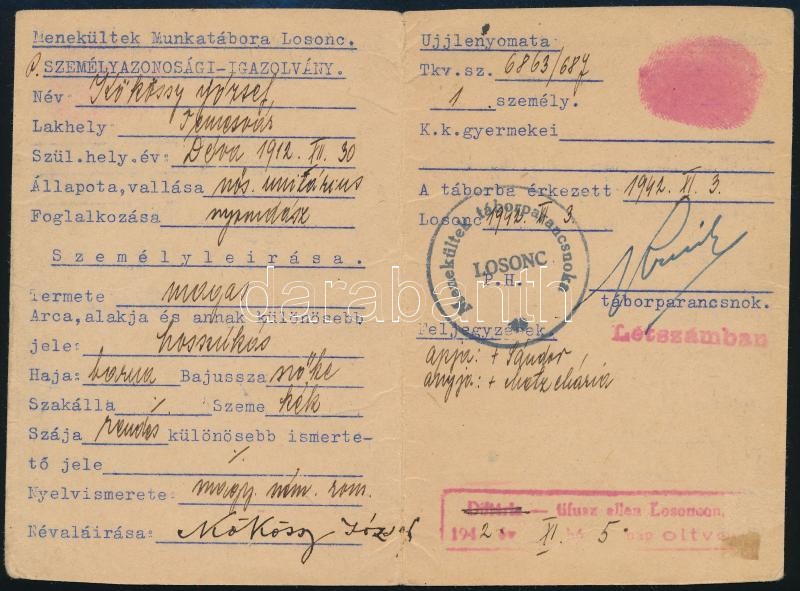 Menekültek Munkatábora Losonc.
SZEMÉLYAZONOSÁGI-IGAZOLVÁNY.
Név Kőkössy József
Lakhely Temesvár
Szül.hely.év: Déva 1912. XII. 30
Állapota,vallása nős. unitárius
Foglalkozása nyomdász
Személyleirása.
Termete magas
Arca,alakja és annak különösebb
jele: hosszúkás
Haja: barna Bajussza szőke
Szakálla ·/. Szeme kék
Szája rendes különösebb ismerte-
tő jele ·/.
Nyelvismerete: magy. ném. rom.
Névaláirása: Kőkössy József
Ujjlenyomata
Tkv.sz. 6863/687
1 személy.
K.k.gyermekei
A táborba érkezett 1942. XI. 3.
Losonc 1942. XI. 3.
Menekültek táborparancsnoksága
LOSONC
P.H.
táborparancsnok.
Feljegyzések.
Létszámban
apja: + Sándor
anyja: + Matz Mária
Diftéria — tifusz ellen Losoncon,
1942 év XI. hó 5 nap oltva
darabanth.com